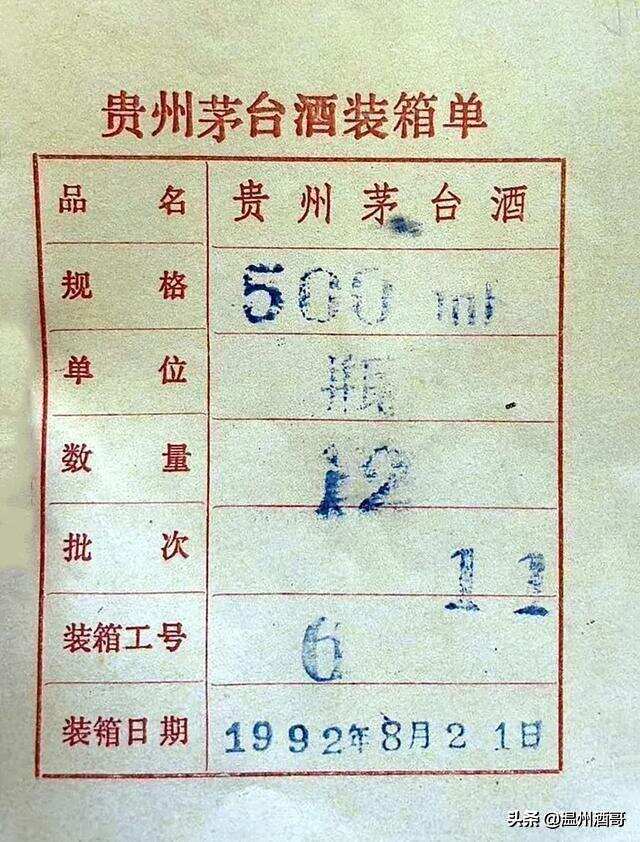 贵州茅台酒装箱单
品名 贵州茅台酒
规格 500 ml
单位 瓶
数量 12
批次 11
装箱工号 6
装箱日期 1992年8月21日
头条 @温州酒哥